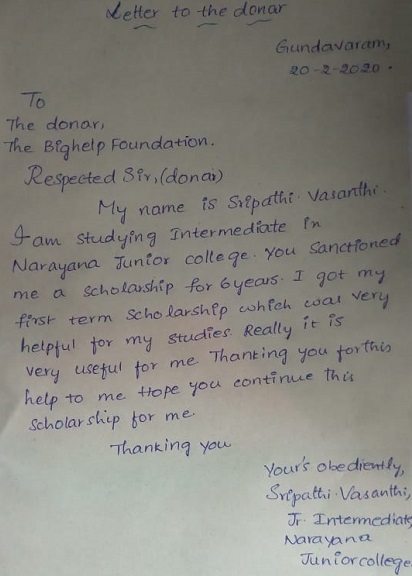 Letter to the donar
Gundavaram,
20-2-2020.
To
The donar,
The Bighelp Foundation.
Respected Sir,(donar)
My name is Sripathi. Vasanthi.
I am studying Intermediate in
Narayana Junior college. You Sanctioned
me a scholarship for 6 years. I got my
first term Scholarship which was very
helpful for my studies. Really it is
very useful for me Thanking you for this
help to me Hope you continue this
Scholarship for me.
Thanking you
Your's obediently,
Sripathi. Vasanthi,
Jr. Intermediate,
Narayana
Junior college.